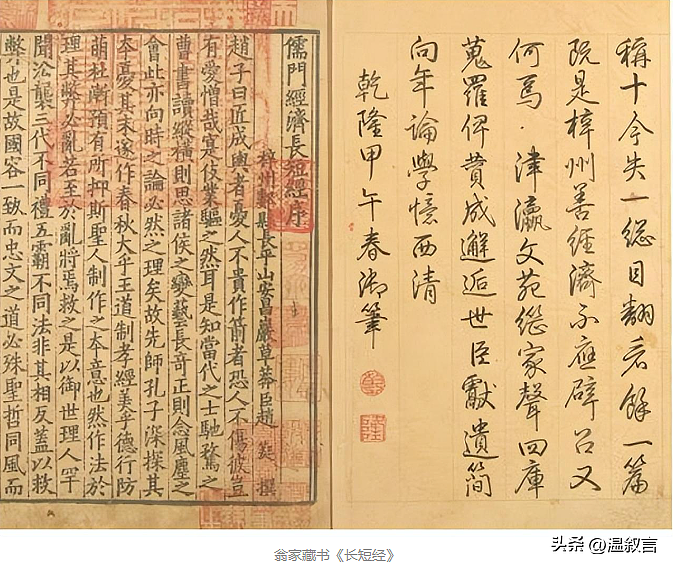 稱十今失一總目翻看餘一篇
既是梓州善經濟不應辟召又
何焉·津瀛文苑繼家聲四庫
蒐羅俾賁成邂逅世臣獻遺簡
向年論學憶西清
乾隆甲午春御筆
儒門經濟長短經序
梓州郪縣長平山安昌巖草莽臣趙 蕤 撰
趙子曰匠成輿者憂人不貴作箭者恐人不傷彼豈
有愛憎哉寔伎業驅之然耳是知當代之士馳騖之
曹書讀縱橫則思諸侯之變藝長奇正則念風塵之
會此亦向時之論必然之理矣故先師孔子深探其
本憂其末遂作春秋大乎王道制孝經美乎德行防
萌杜漸預有所抑斯聖人制作之本意也然作法於
理其弊必亂若至於亂將焉救之是以御世理人罕
聞沿襲三代不同禮五霸不同法非其相反蓋以救
弊也是故國容一致而忠文之道必殊聖哲同風而
头条 @温叙言
翁家藏书《长短经》